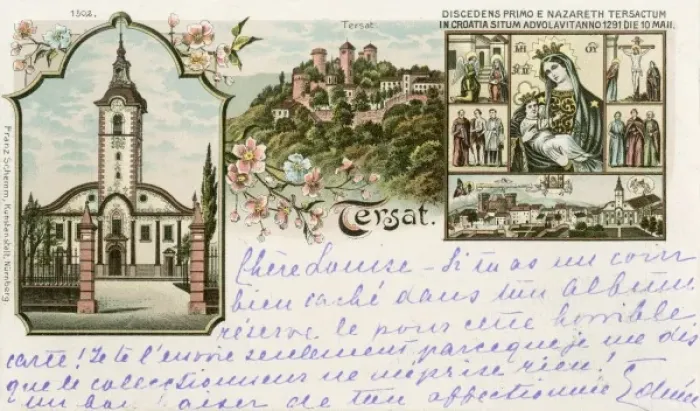 1502.
Tersat.
DISCEDENS PRIMO E NAZARETH TERSACTUM
IN CROATIA SITUM ADVOLAVIT ANNO 1291 DIE 10 MAII.
Franz Schemm, Kunstanstalt, Nürnberg
Tersat.
Chère Louise – Si tu as un coin
bien caché dans ton album
réserve le pour cette horrible
carte! Je te l'envoie seulement parceque je me dis
que le collectionneur ne méprise rien!
un de ton affectionnée